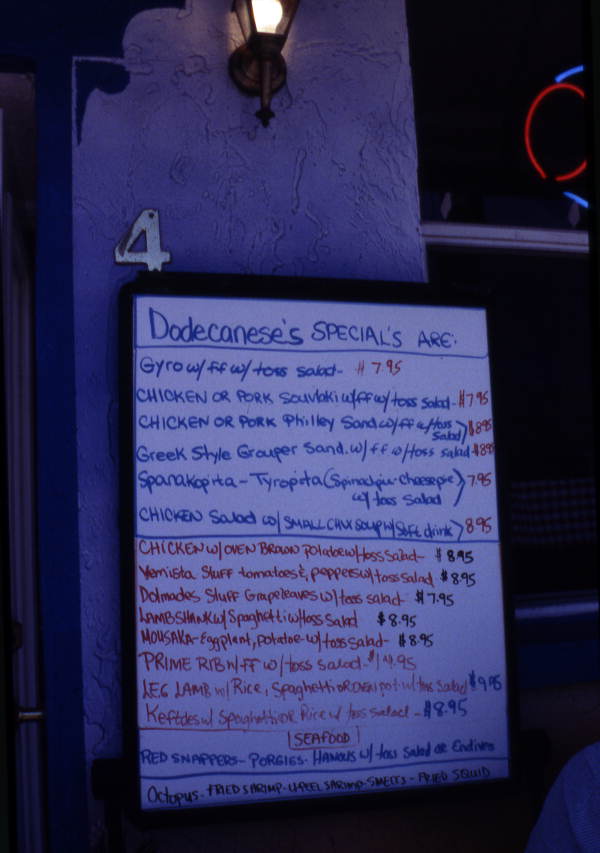 4
Dodecanese's SPECIAL'S ARE.
Gyro w/ff w/toss salad- $7.95
CHICKEN OR PORK Souvlaki w/ff w/toss salad- $7.95
CHICKEN OR PORK Philley Sand. w/ff w/toss salad $8.95
Greek Style Grouper Sand. w/ff w/toss salad- $8.95
Spanakopita-Tyropita (Spinachpie-cheesepie) w/toss salad 7.95
CHICKEN Salad w/SMALL CHIX SOUP W/Soft drink 8.95
CHICKEN W/OVEN BROWN potatoe w/toss salad- $8.95
Yemista Stuff tomatoes &, peppers w/toss salad $8.95
Dolmades Stuff Grapeleaves w/toss salad- $7.95
LAMB SHANK w/Spaghetti w/toss salad $8.95
MOUSAKA-Eggplant, potatoe-w/toss salad- $8.95
PRIME RIB W/FF w/toss salad- $14.95
LEG LAMB w/Rice, Spaghetti OR OVEN pot. w/toss Salad $9.95
Keftdes w/ Spaghetti OR Rice w/ toss salad- $8.95
SEAFOOD
RED SNAPPERS- PORGIES- HANOUS w/ toss Salad or Endives
Octopus- FRIED SHRIMP-U-PEEL SHRIMP-SMELTS- FRIED SQUID